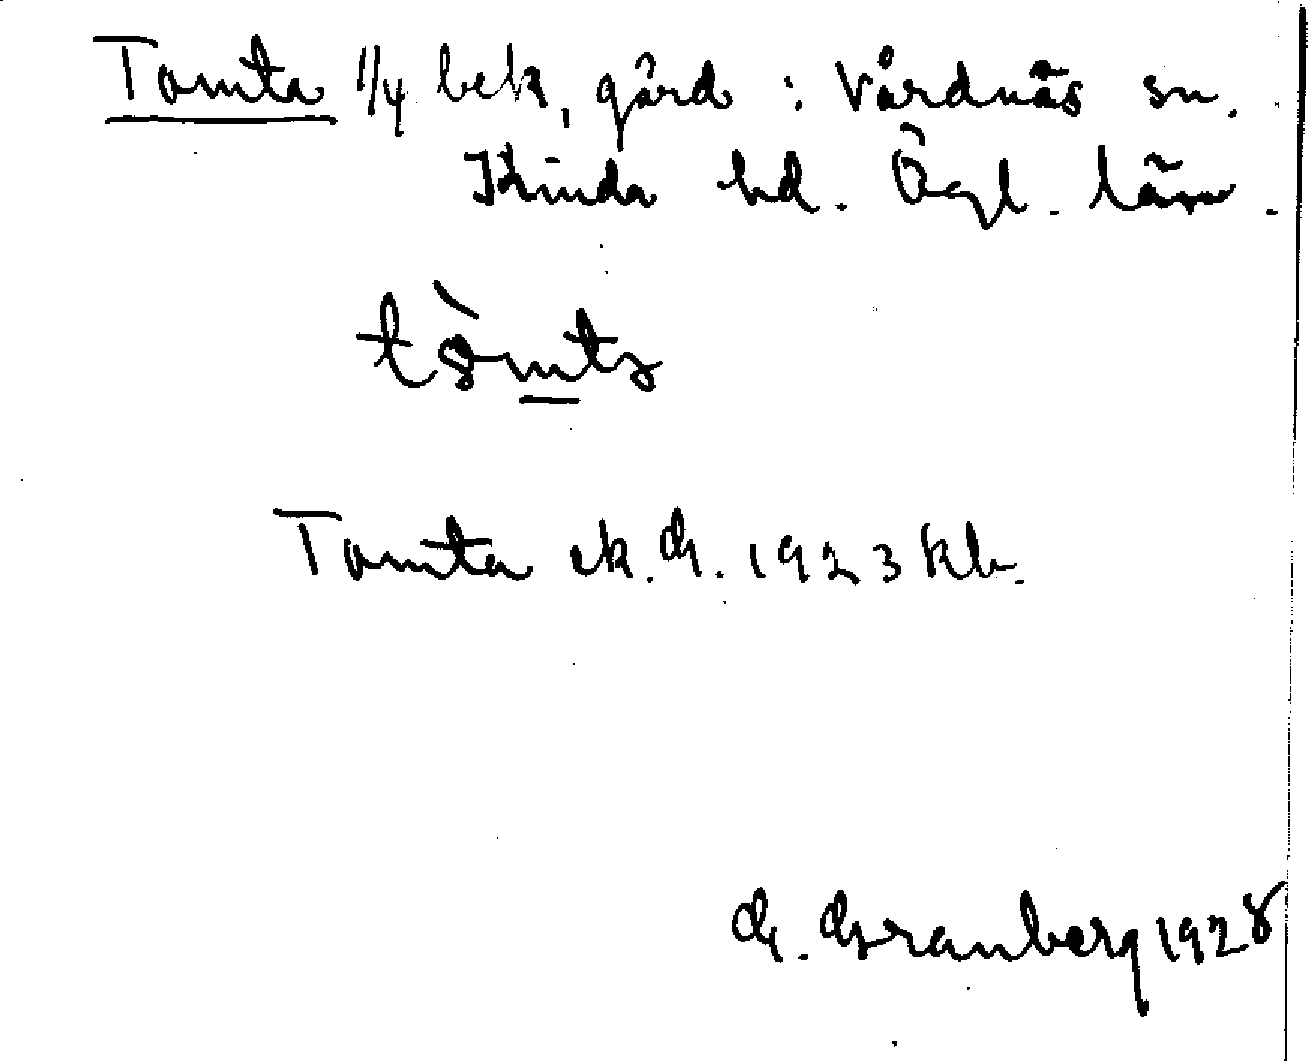 Tomta 1/4 bek, gård : Vårdnäs sn.
Kinda hd. Ögl. län.
Tomta ek. G. 1923 kb.
G. Granberg 1928